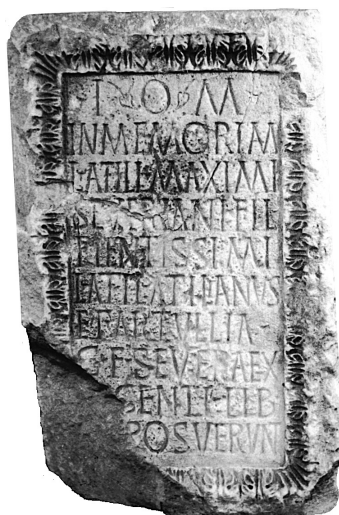 I O M
IN MEMORIM
L ATILI MAXIMI
FIL
PIENTISSIMI
L ATIL ATILIANVS
ET ARTVLLIA
G F SEVERA EX
POSVERVN